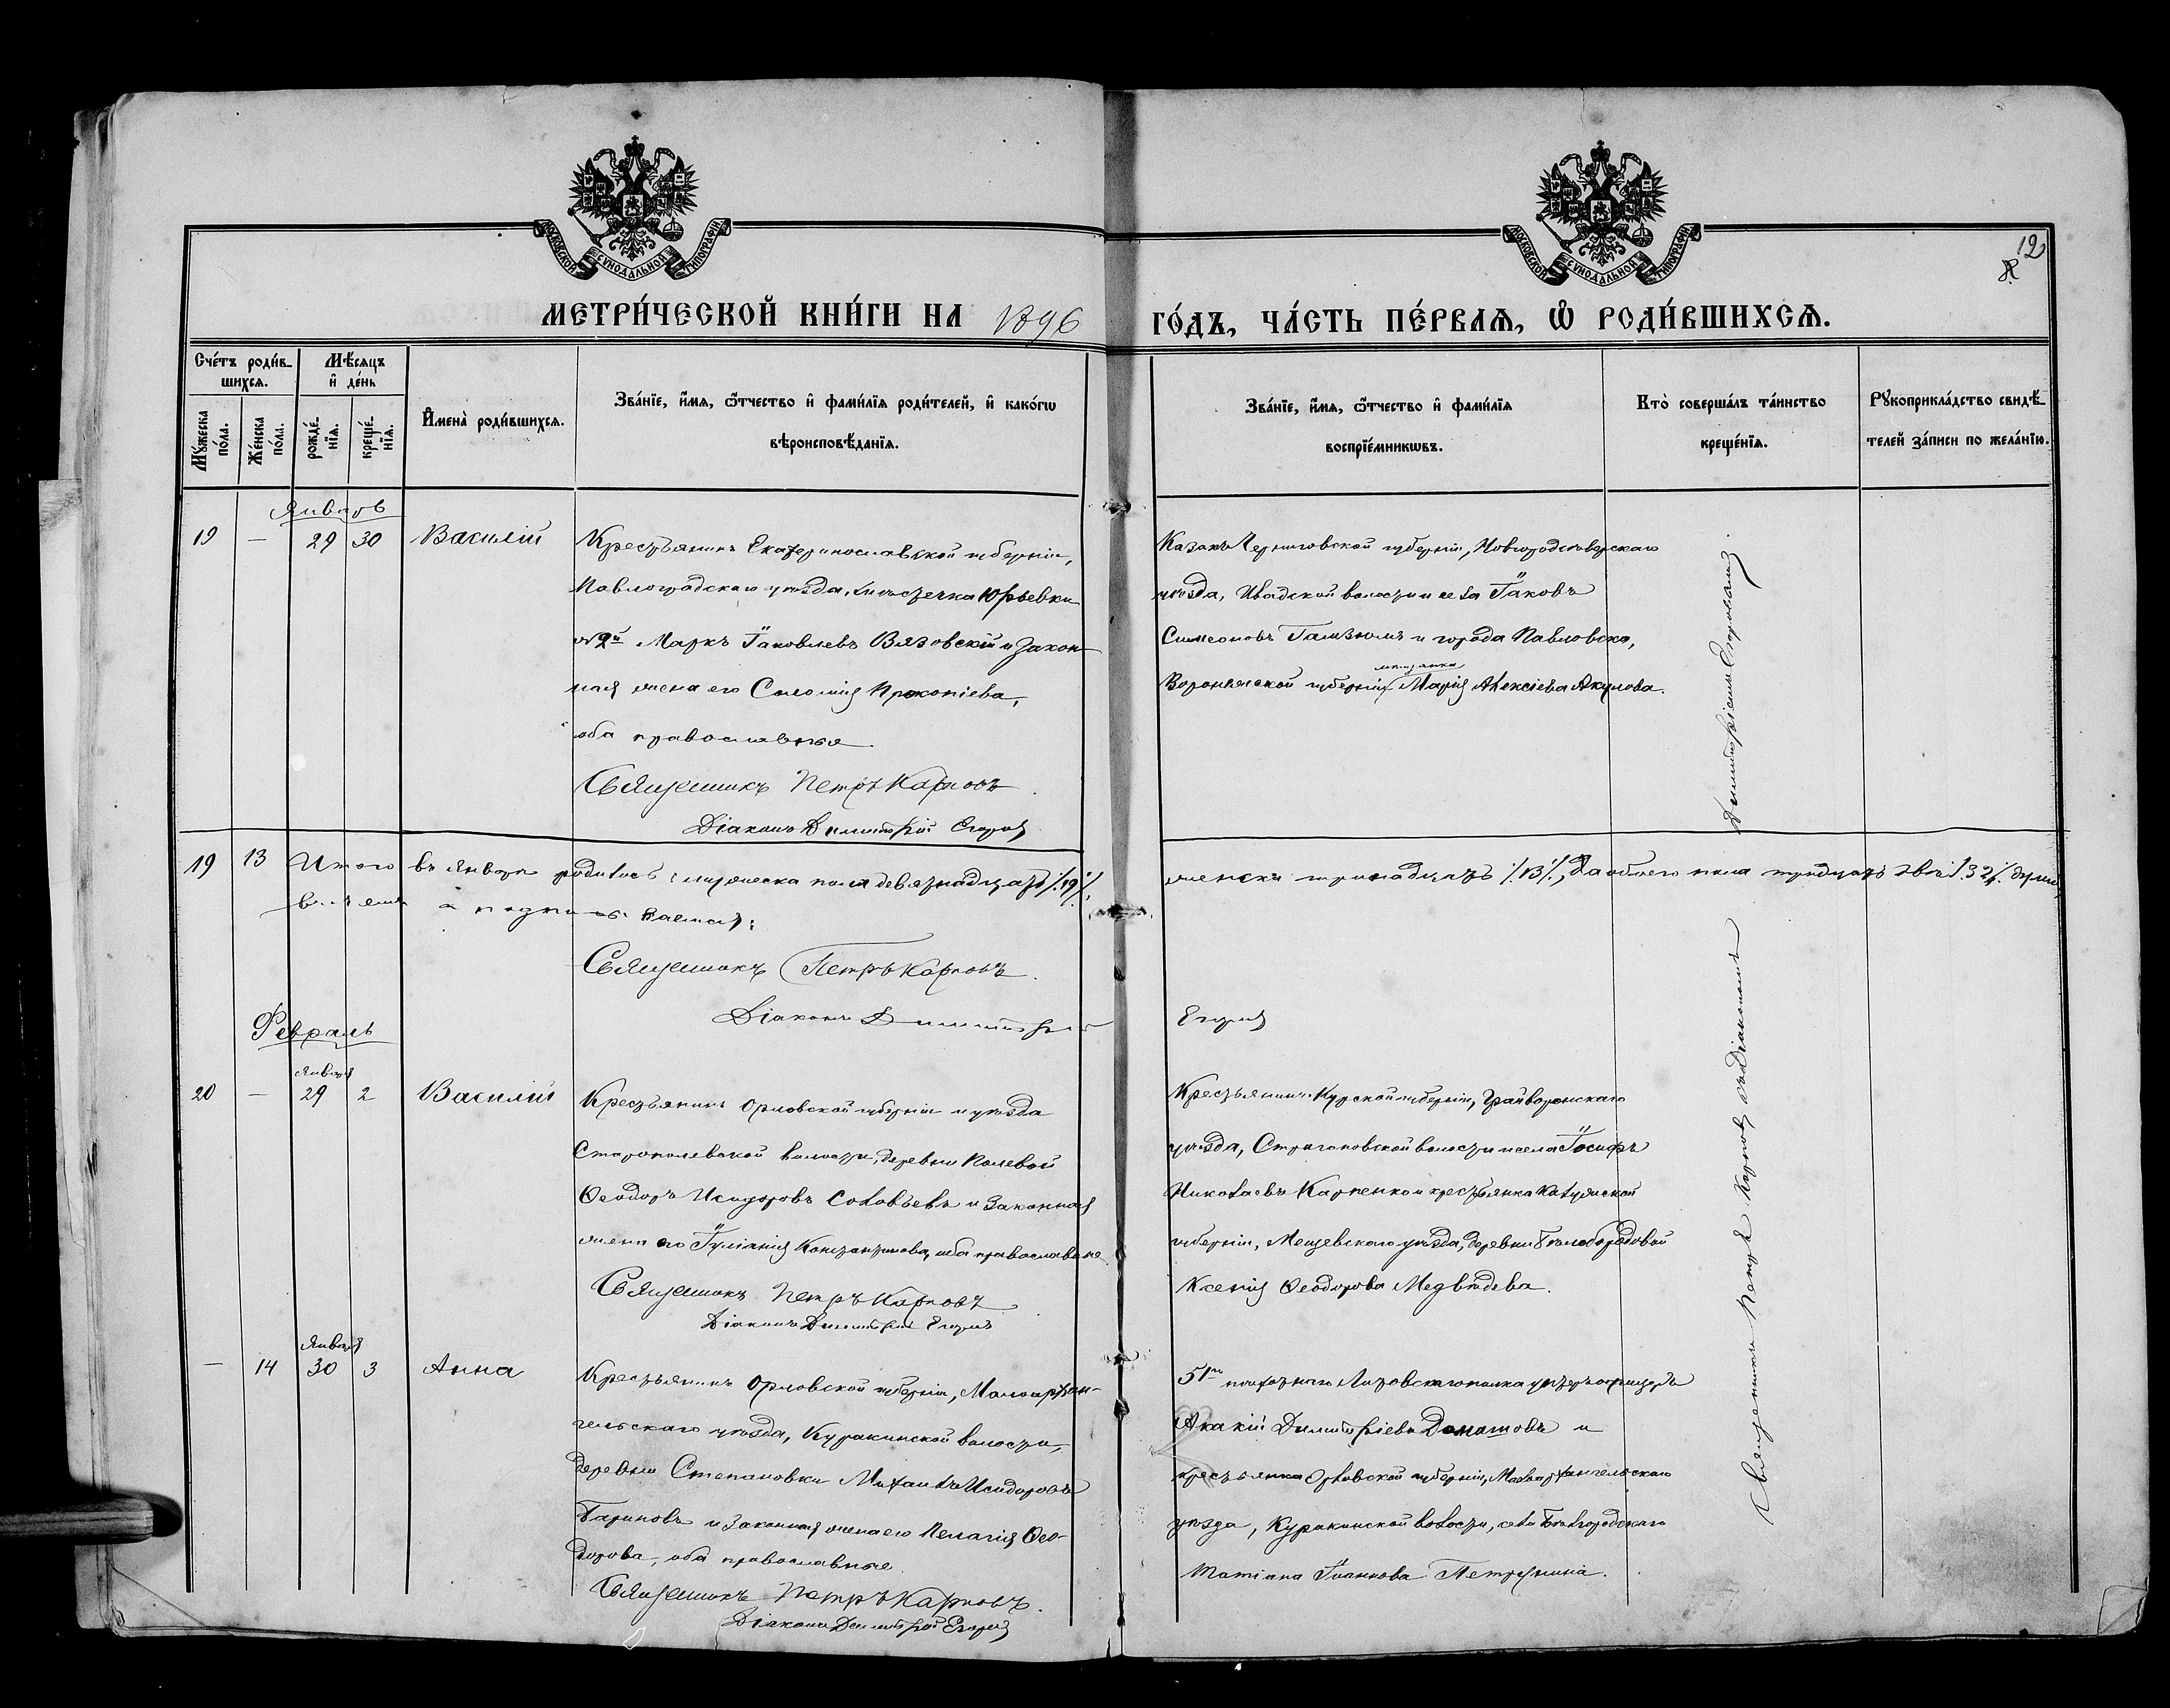 МОСКОВСКОЙ СѴНОДАЛЬНОЙ ТИПОГРАФІИ
МОСКОВСКОЙ СѴНОДАЛЬНОЙ ТИПОГРАФІИ
12
МЕТРИ́ЧЕСКОЙ КНИ́ГИ НА 1896 ГО́ДЪ, ЧА́СТЬ ПЕ́РВАѦ, Ѡ РОДИ́ВШИХСѦ.
Сче́тъ роди́в-
шихсѧ.
Мꙋ́жеска по́ла.
Же́нска по́ла.
Мѣ́сѧцъ
и҆ де́нь
рожде́-
нїѧ.
креще́-
нїѧ.
И҆мена̀ роди́вшихсѧ.
Зва́нїе, и҆́мѧ, ѻ҆́тчество и҆ фами́лїѧ роди́телей, и҆ како́гѡ
вѣроисповѣ́данїѧ.
Зва́нїе, и҆́мѧ, ѻ҆́тчество и҆ фами́лїѧ
воспрїе́мникѡвъ.
Кто̀ соверша́лъ та́инство
креще́нїѧ.
Рꙋкоприкла́дство свидѣ́-
телей за́писи по жела́нїю.
Январь
19 — 29 30 Василій
Крестьянинъ Екатеринославской губерніи,
Павлоградскаго уѣзда, мѣстечка Юрьевки
№ 2й Маркъ Іаковлевъ Вязовскій и закон-
ная жена его Соломія Прокопіева,
оба православные
Священникъ Петръ Карповъ
Діаконъ Димитрій Егоров
Казакъ Черниговской губерніи, Новгородсѣверскаго
уѣзда, Ивадской волости и села Іаковъ
Симеоновъ и города Павловска,
Воронежской губерніи мѣщанка Марія Алексіева Акулова.
19 13 Итого въ январѣ родилось: мужеска пола девятнадцать ./.19./.,
женска тринадцать ./.13./., да обоего пола тридцать двѣ ./.32./. души
Священникъ Петръ Карповъ
Діаконъ Димитрій Егоров
Февраль
Января
20 — 29 2 Василій
Крестьянинъ Орловской губерніи и уѣзда
Старополевской волости, деревни Полевой
Ѳеодоръ Исидоровъ Соловьевъ и законная
жена его Іуліанія Константинова, оба православные
Священникъ Петръ Карповъ
Діаконъ Димитрій Егоровъ
Крестьянинъ Курской губерніи, Грайворонскаго
уѣзда, Стригоновской волости и села Іосифъ
Николаевъ Карпенко и крестьянка Калужской
губерніи, Мещевскаго уѣзда, деревни Бѣлобородовой
Ксенія Ѳеодорова Медвѣдева.
Января
— 14 30 3 Анна
Крестьянинъ Орловской губерніи, Малоархан-
гельскаго уѣзда, Куракинской волости,
деревни Степановки Михаилъ Исидоровъ
Париковъ и законная жена его Пелагія Ѳео-
дорова, оба православные
Священникъ Петръ Карповъ.
Діаконъ Димитрій Егоров
51го пѣхотнаго Литовскаго полка унтеръ офицеръ
Акакій Димитріевъ Доматовъ и
крестьянка Орловской губерніи, Малоархангельскаго
уѣзда, Куракинской волости, села Бѣлгородскаго
Татіана Іоаннова Петрухина.
Священникъ Петръ Карповъ съ Діакономъ
Димитріемъ Егоровымъ